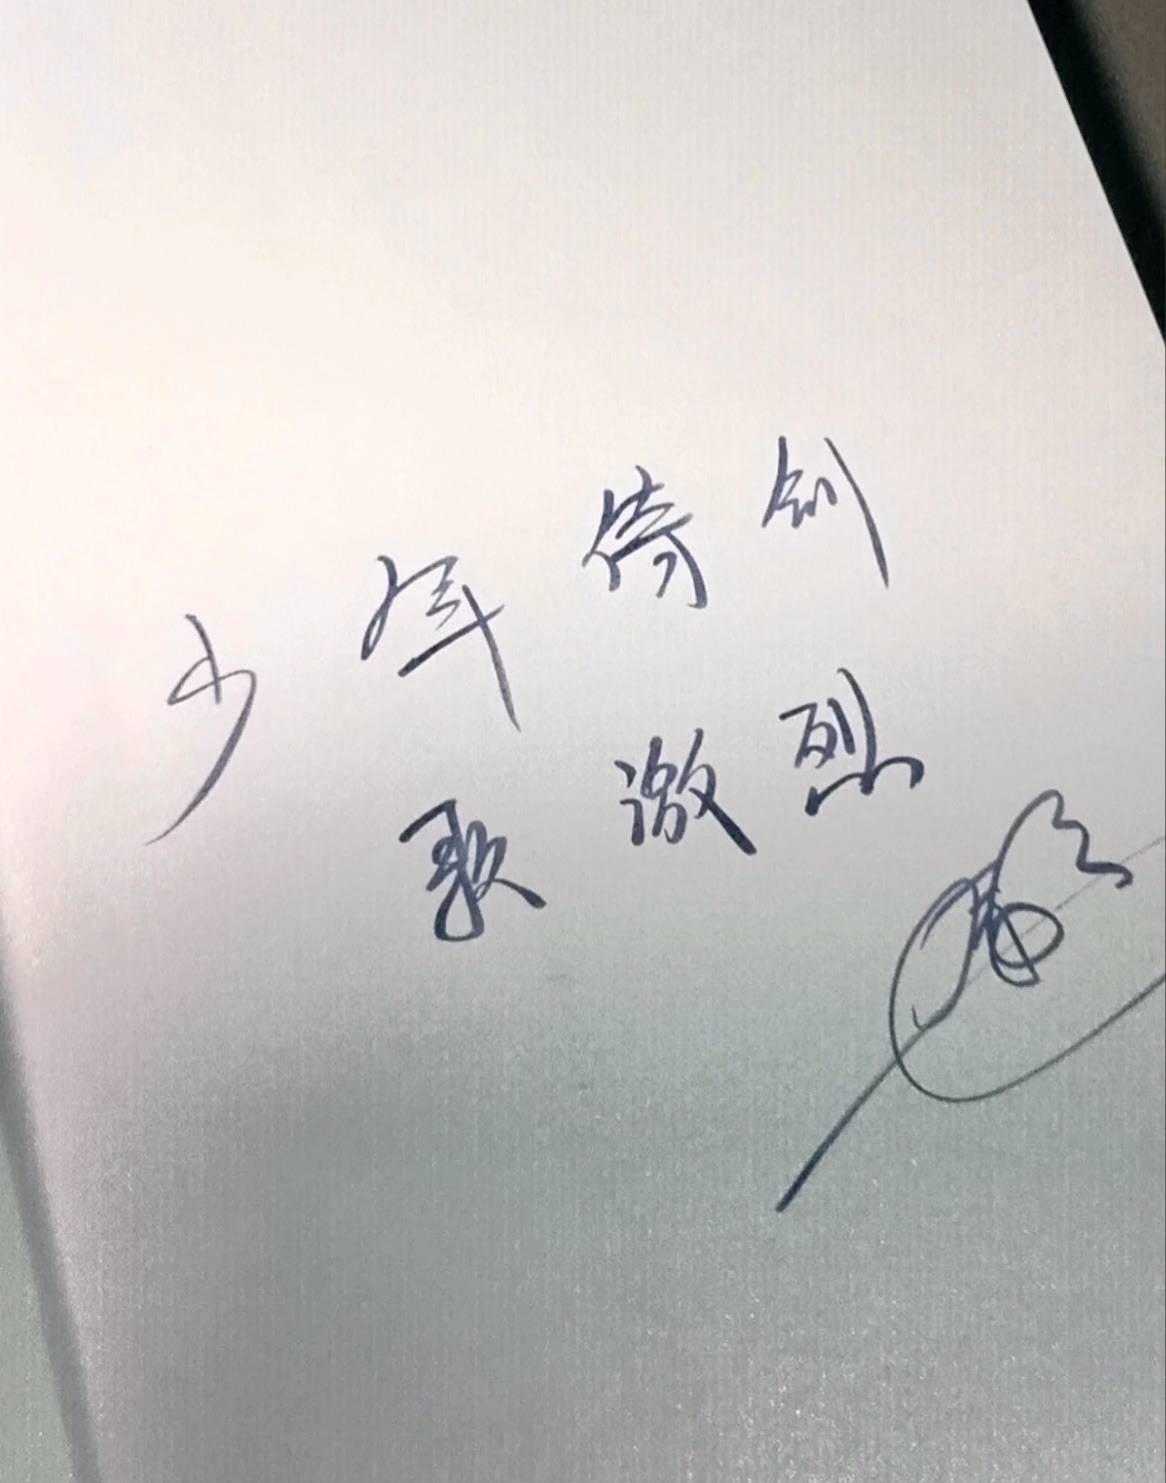 少年倚剑
歌激烈